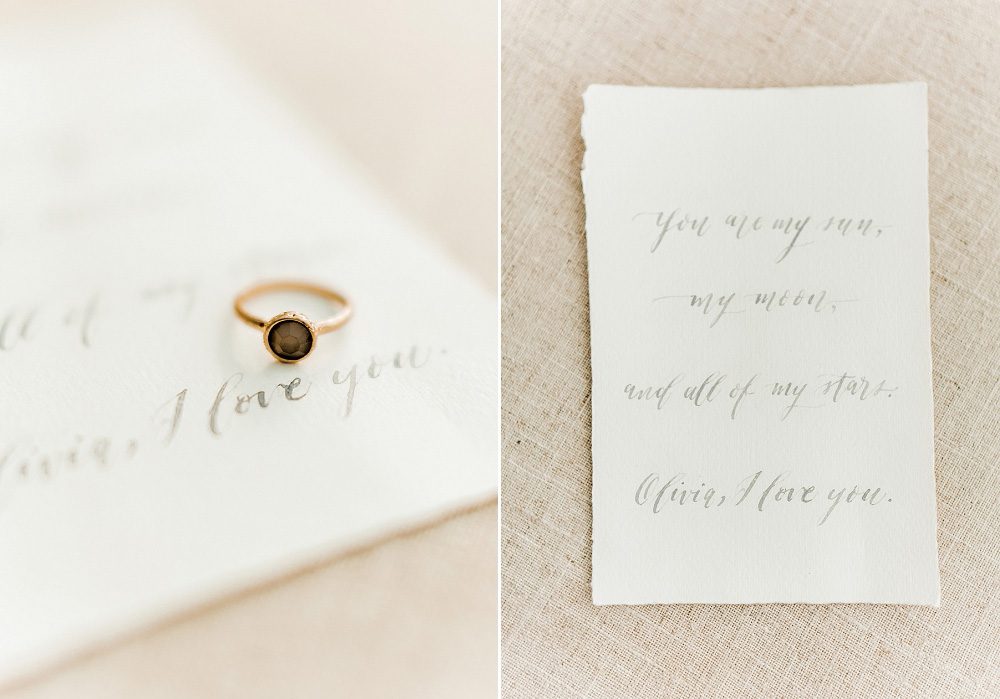 all of my stars
Olivia, I love you.
You are my sun,
my moon,
and all of my stars.
Olivia, I love you.